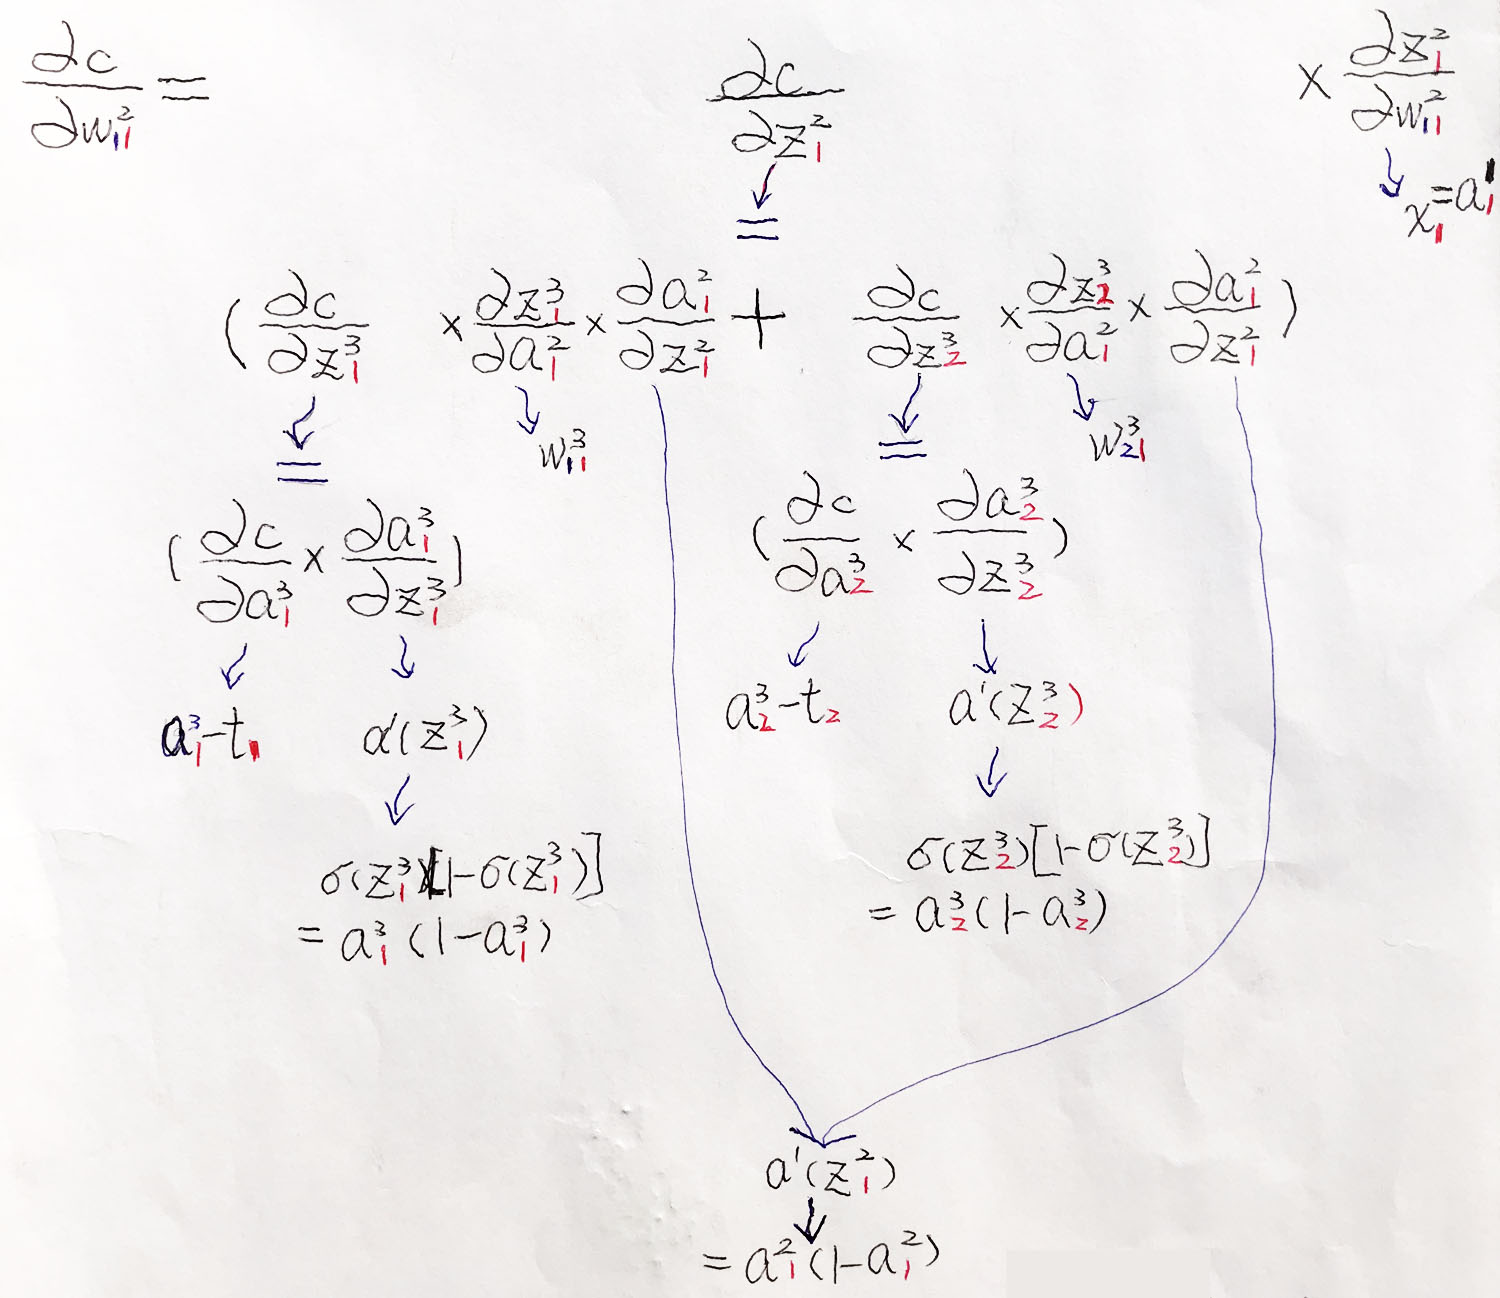 ∂c/∂w₁₁² = ∂c/∂z₁² × ∂z₁²/∂w₁₁²
↓ ↘ x₁ = a₁¹
=
(∂c/∂z₁³ × ∂z₁³/∂a₁² × ∂a₁²/∂z₁² + ∂c/∂z₂³ × ∂z₂³/∂a₁² × ∂a₁²/∂z₁²)
↓ ↘ w₁₁³ ↓ ↘ w₂₁³
= =
(∂c/∂a₁³ × ∂a₁³/∂z₁³) (∂c/∂a₂³ × ∂a₂³/∂z₂³)
↓ ↓ ↓ ↓
a₁³-t₁ a'(z₁³) a₂³-t₂ a'(z₂³)
↓ ↓
σ(z₁³)[1-σ(z₁³)] σ(z₂³)[1-σ(z₂³)]
= a₁³(1-a₁³) = a₂³(1-a₂³)
a'(z₁²)
↓
= a₁²(1-a₁²)